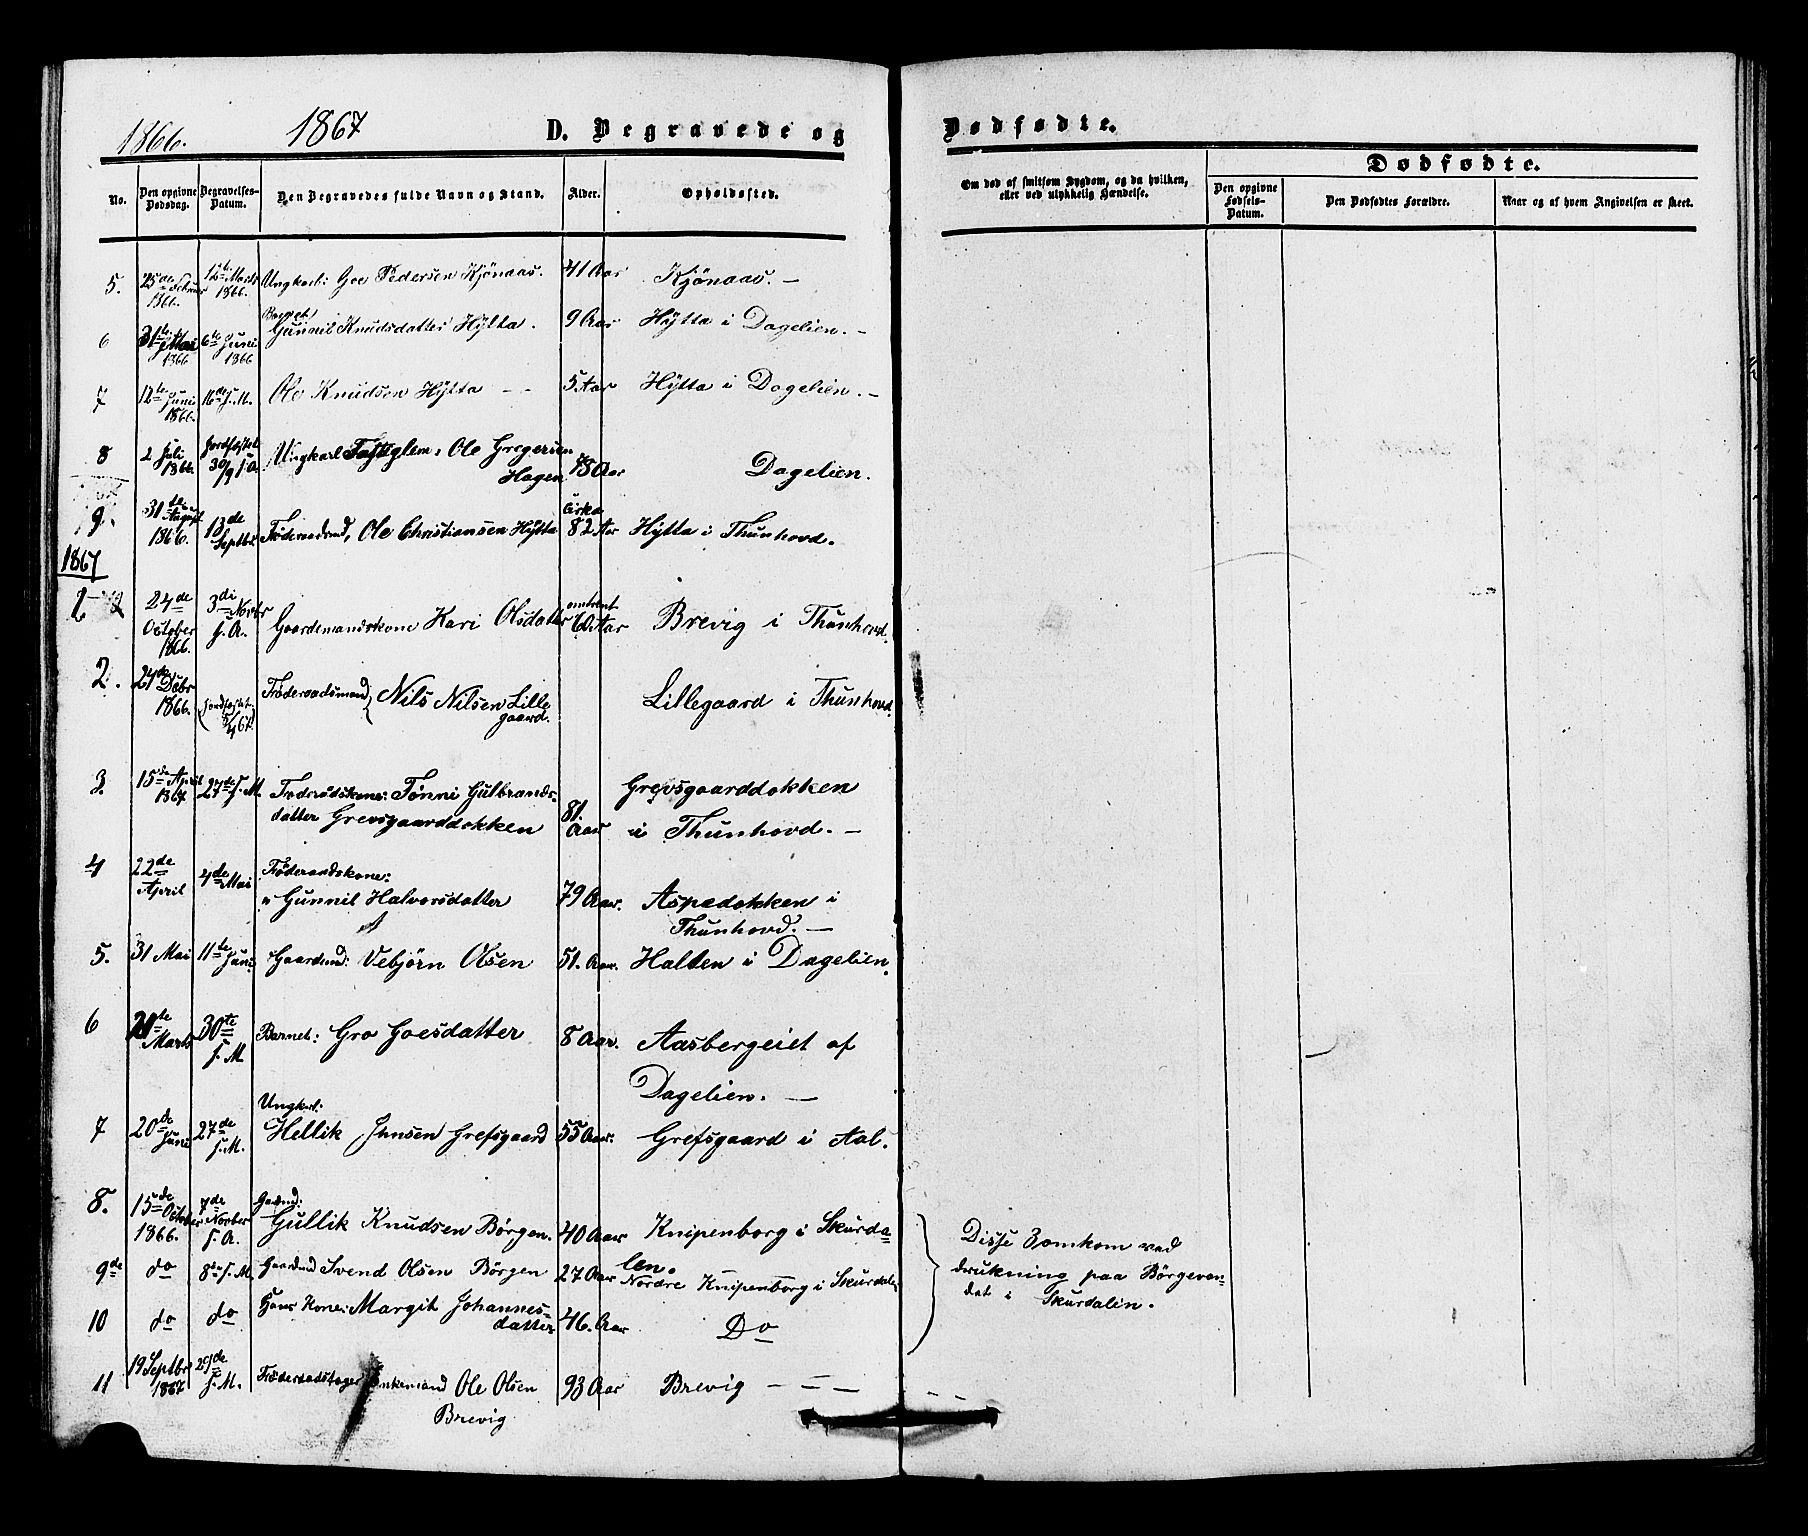 1866. 1867 D. Begravede og Dødfødte.
Dødfødte.
No. Den opgivne Dødsdag. Begravelses-Datum. Den Begravedes fulde Navn og Stand. Alder. Opholdssted. Om død af smitsom Sygdom, og da hvilken, eller ved ulykkelig Hændelse. Den opgivne Fødsels-Datum. Den Dødfødtes Forældre. Naar og af hvem Angivelsen er skeet.
5. 25de Februar 1866. 12te Marts 1866. Ungkarl: Goe Pedersen Kjönaas. 41 Aar Kjönaas. —
6 31te Mai 1866 6te Juni 1866 Barnet Gunnil Knudsdatter Hÿtta. 9 Aar Hÿtta i Dagelien. —
7 12te Juni 1866. 16de s. M. Ole Knudsen Hÿtta — — 5 Aar Hÿtta i Dagelien. —
8 2 Juli 1866. Jordfæstet 30/9 s. A. Ungkarl Fattiglem: Ole Gregersen
Hagen 78 Aar Dagelien.
9. 31te August 1866. 13de Septbr Föderaadmd, Ole Christiansen Hÿtta cirka 82 Aar Hÿtta i Thunhovd.
1867
1 24de October 1866. 3di Novbr s. A. Gaardemandskone Kari Olsdatter omtrent 60 Aar Brevig i Thunhovd.
2. 24de Decbr 1866. Jordfæstet 5/4 67. Föderaadsmand, Nils Nilsen Lille
gaard. Lillegaard i Thunhovd.
3. 15de April 1867 27de s. M. Föderaadskone: Tönni Gulbrands-
datter Grevsgaarddokken 81. Aar Grevsgaarddokken
i Thunhovd. —
4 22de April 4de Mai Föderaadskone:
" Gunnil Halvorsdatter 79 Aar. Aspedokken i
Thunhovd. —
5. 31 Mai 11te Juni Gaardmd: Vebjörn Olsen 51. Aar. Halten i Dagelien.
6 20te Marts 30te s. M. Barnet: Gro Goesdatter 8 Aar. Aasbergeiet af
Dagelien. —
7 20de Juni 27de s. M. Ungkarl: Hellik Jensen Grefsgaard 55 Aar. Grefsgaard i Aal.
8. 15de October 1866. 7de Novber s. A. Gaardmd: Gullik Knudsen Börgen. 40 Aar Knipenborg i Skurda-
len.
9de do 8de s. M. Gaardmd Svend Olsen Börgen 27 Aar Nordre Knipenborg i Skurdale
10 do do Hans Kone: Margit Johannes-
datter 46. Aar Do
Disse 3 omkom ved
drukning paa Börgevan-
det i Skurdalen.
11 19 Septbr 1867 29de s. M. Föderaadstager Enkemand Ole Olsen
Brevig 93 Aar Brevig — — —